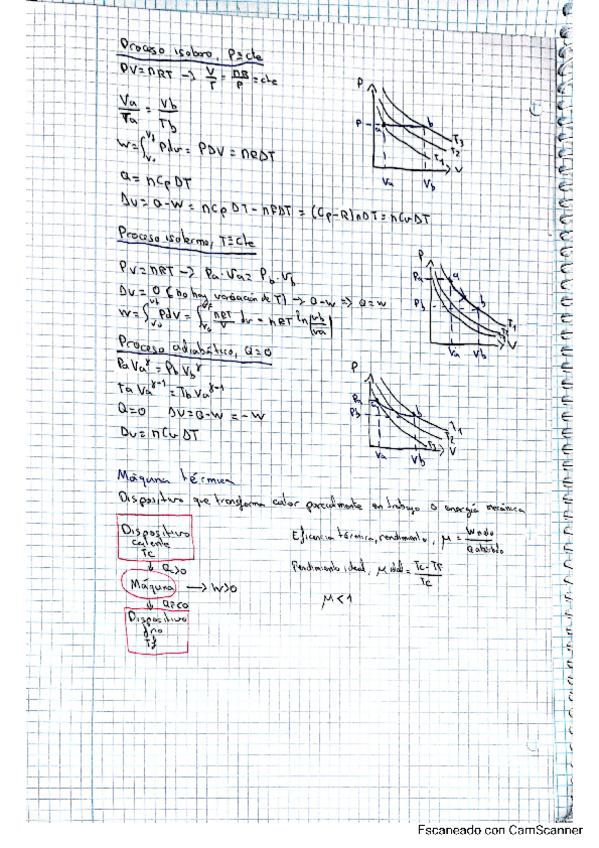 Proceso isobaro, P=cte
PV=nRT → V/T = nR/P = cte
Va/Ta = Vb/Tb
W=∫ Pdv = PDV = nRDT
Q = nCp DT
DU = Q-W = nCp DT - nRDT = (Cp-R)nDT = nCvDT
P
P
a
b
T3
T2
T1
V
Va
Vb
Proceso isotermo, T=cte
PV=nRT → Pa·Va = Pb·Vb
DU = 0 (no hay variación de T) → Q-W => Q=W
W=∫ Pdv = ∫ nRT/V dv = nRT ln|Vb/Va|
P
Pa
Pb
a
b
T1
V
Va
Vb
Proceso adiabático, Q=0
PaVa^γ = PbVb^γ
TaVa^γ-1 = TbVa^γ-1
Q=0 DU=Q-W = -W
DU = nCv DT
P
Pa
Pb
b
T1
T2
T3
V
Va
Vb
Máquina térmica
Dispositivo que transforma calor parcialmente en trabajo o energía mecánica
Dispositivo
caliente
Tc
↓ Q>0
Máquina → W>0
↓ Q<0
Dispositivo
frio
Tf
Eficiencia térmica, rendimiento, μ = Wneto/Qabsorbido
Rendimiento ideal, μ ideal = Tc-Tf/Tc
μ<1
Escaneado con CamScanner